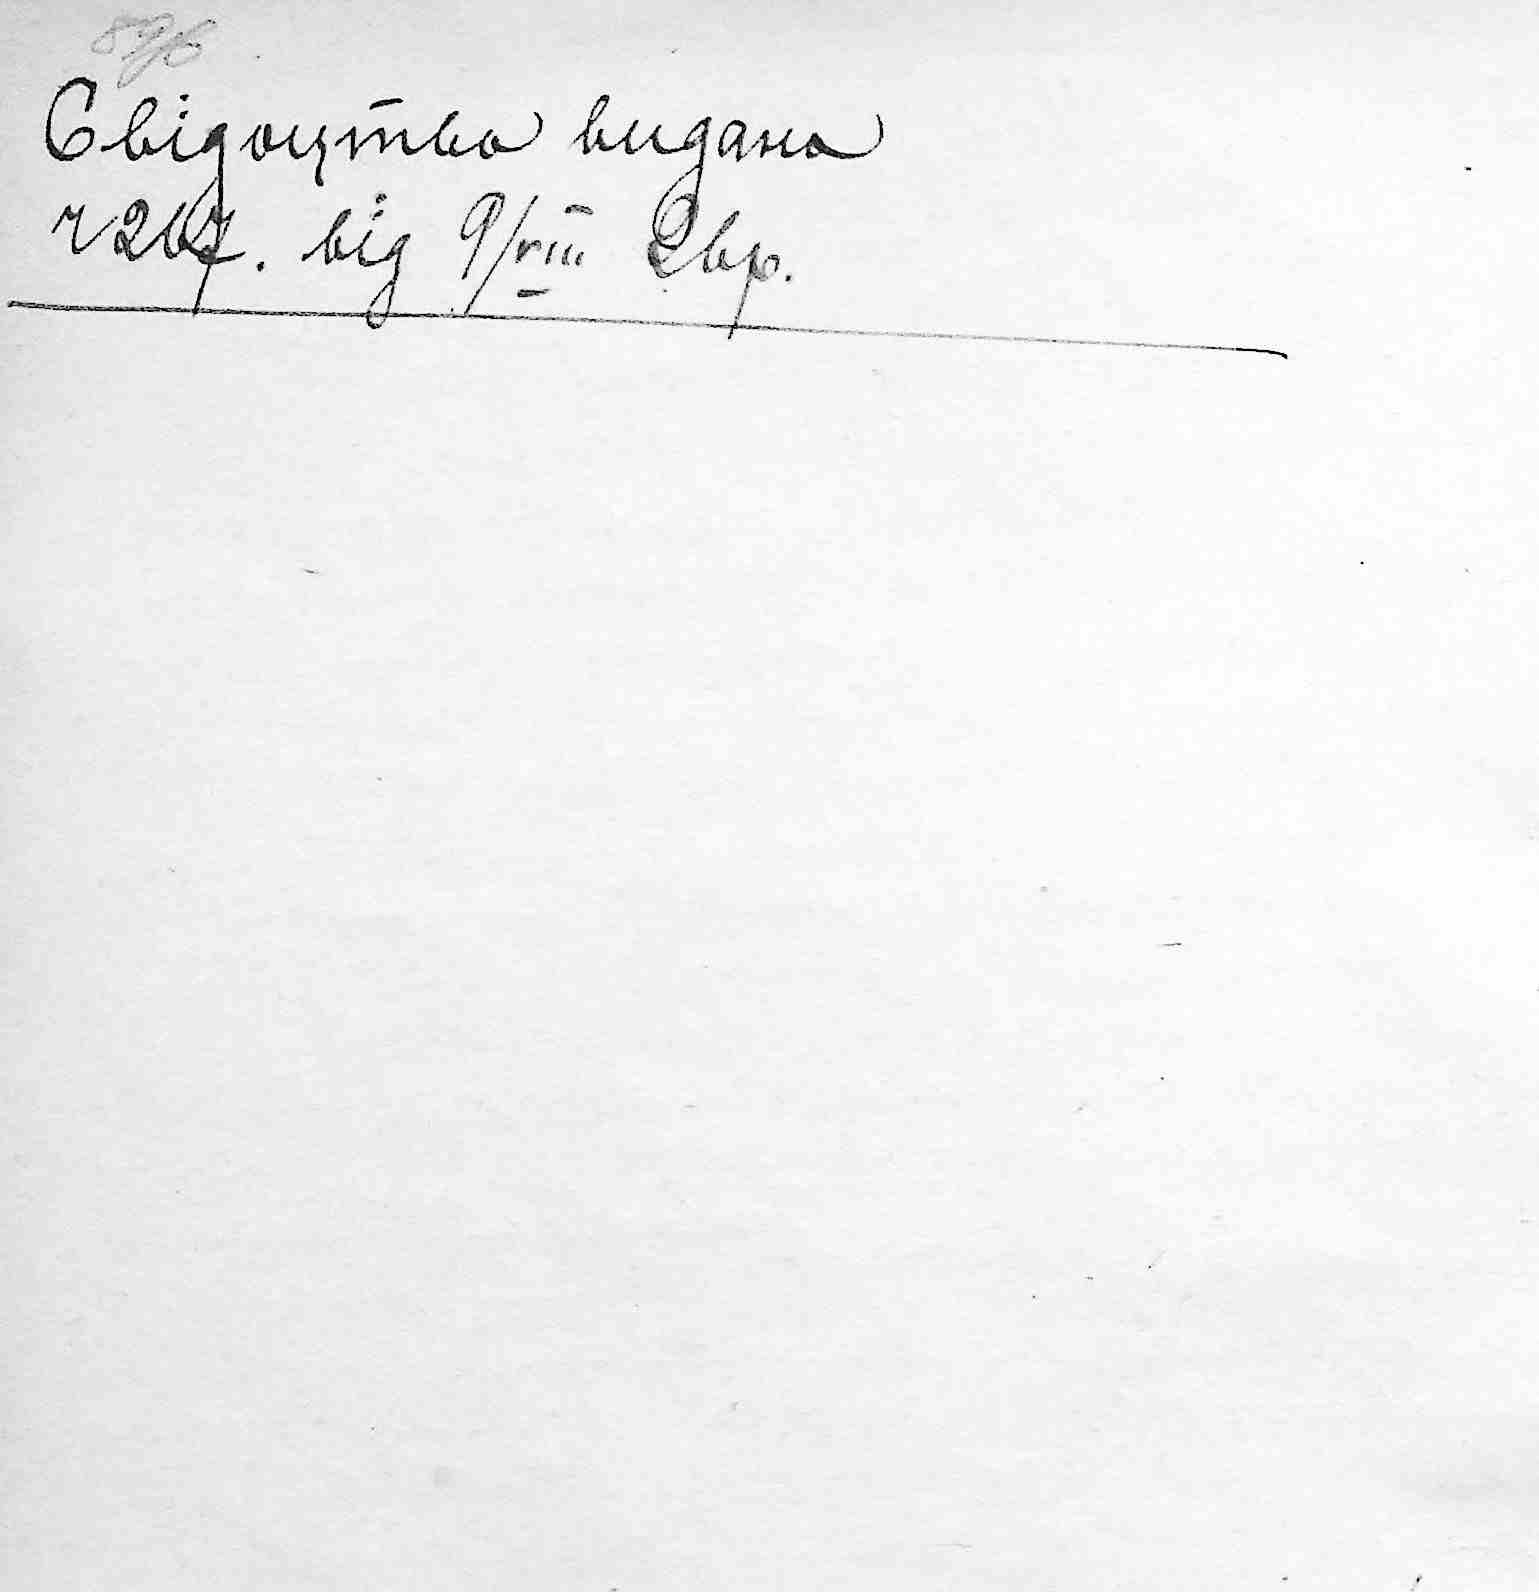 Свідоцтво видано
ч 267. від 9/VIII 26р.